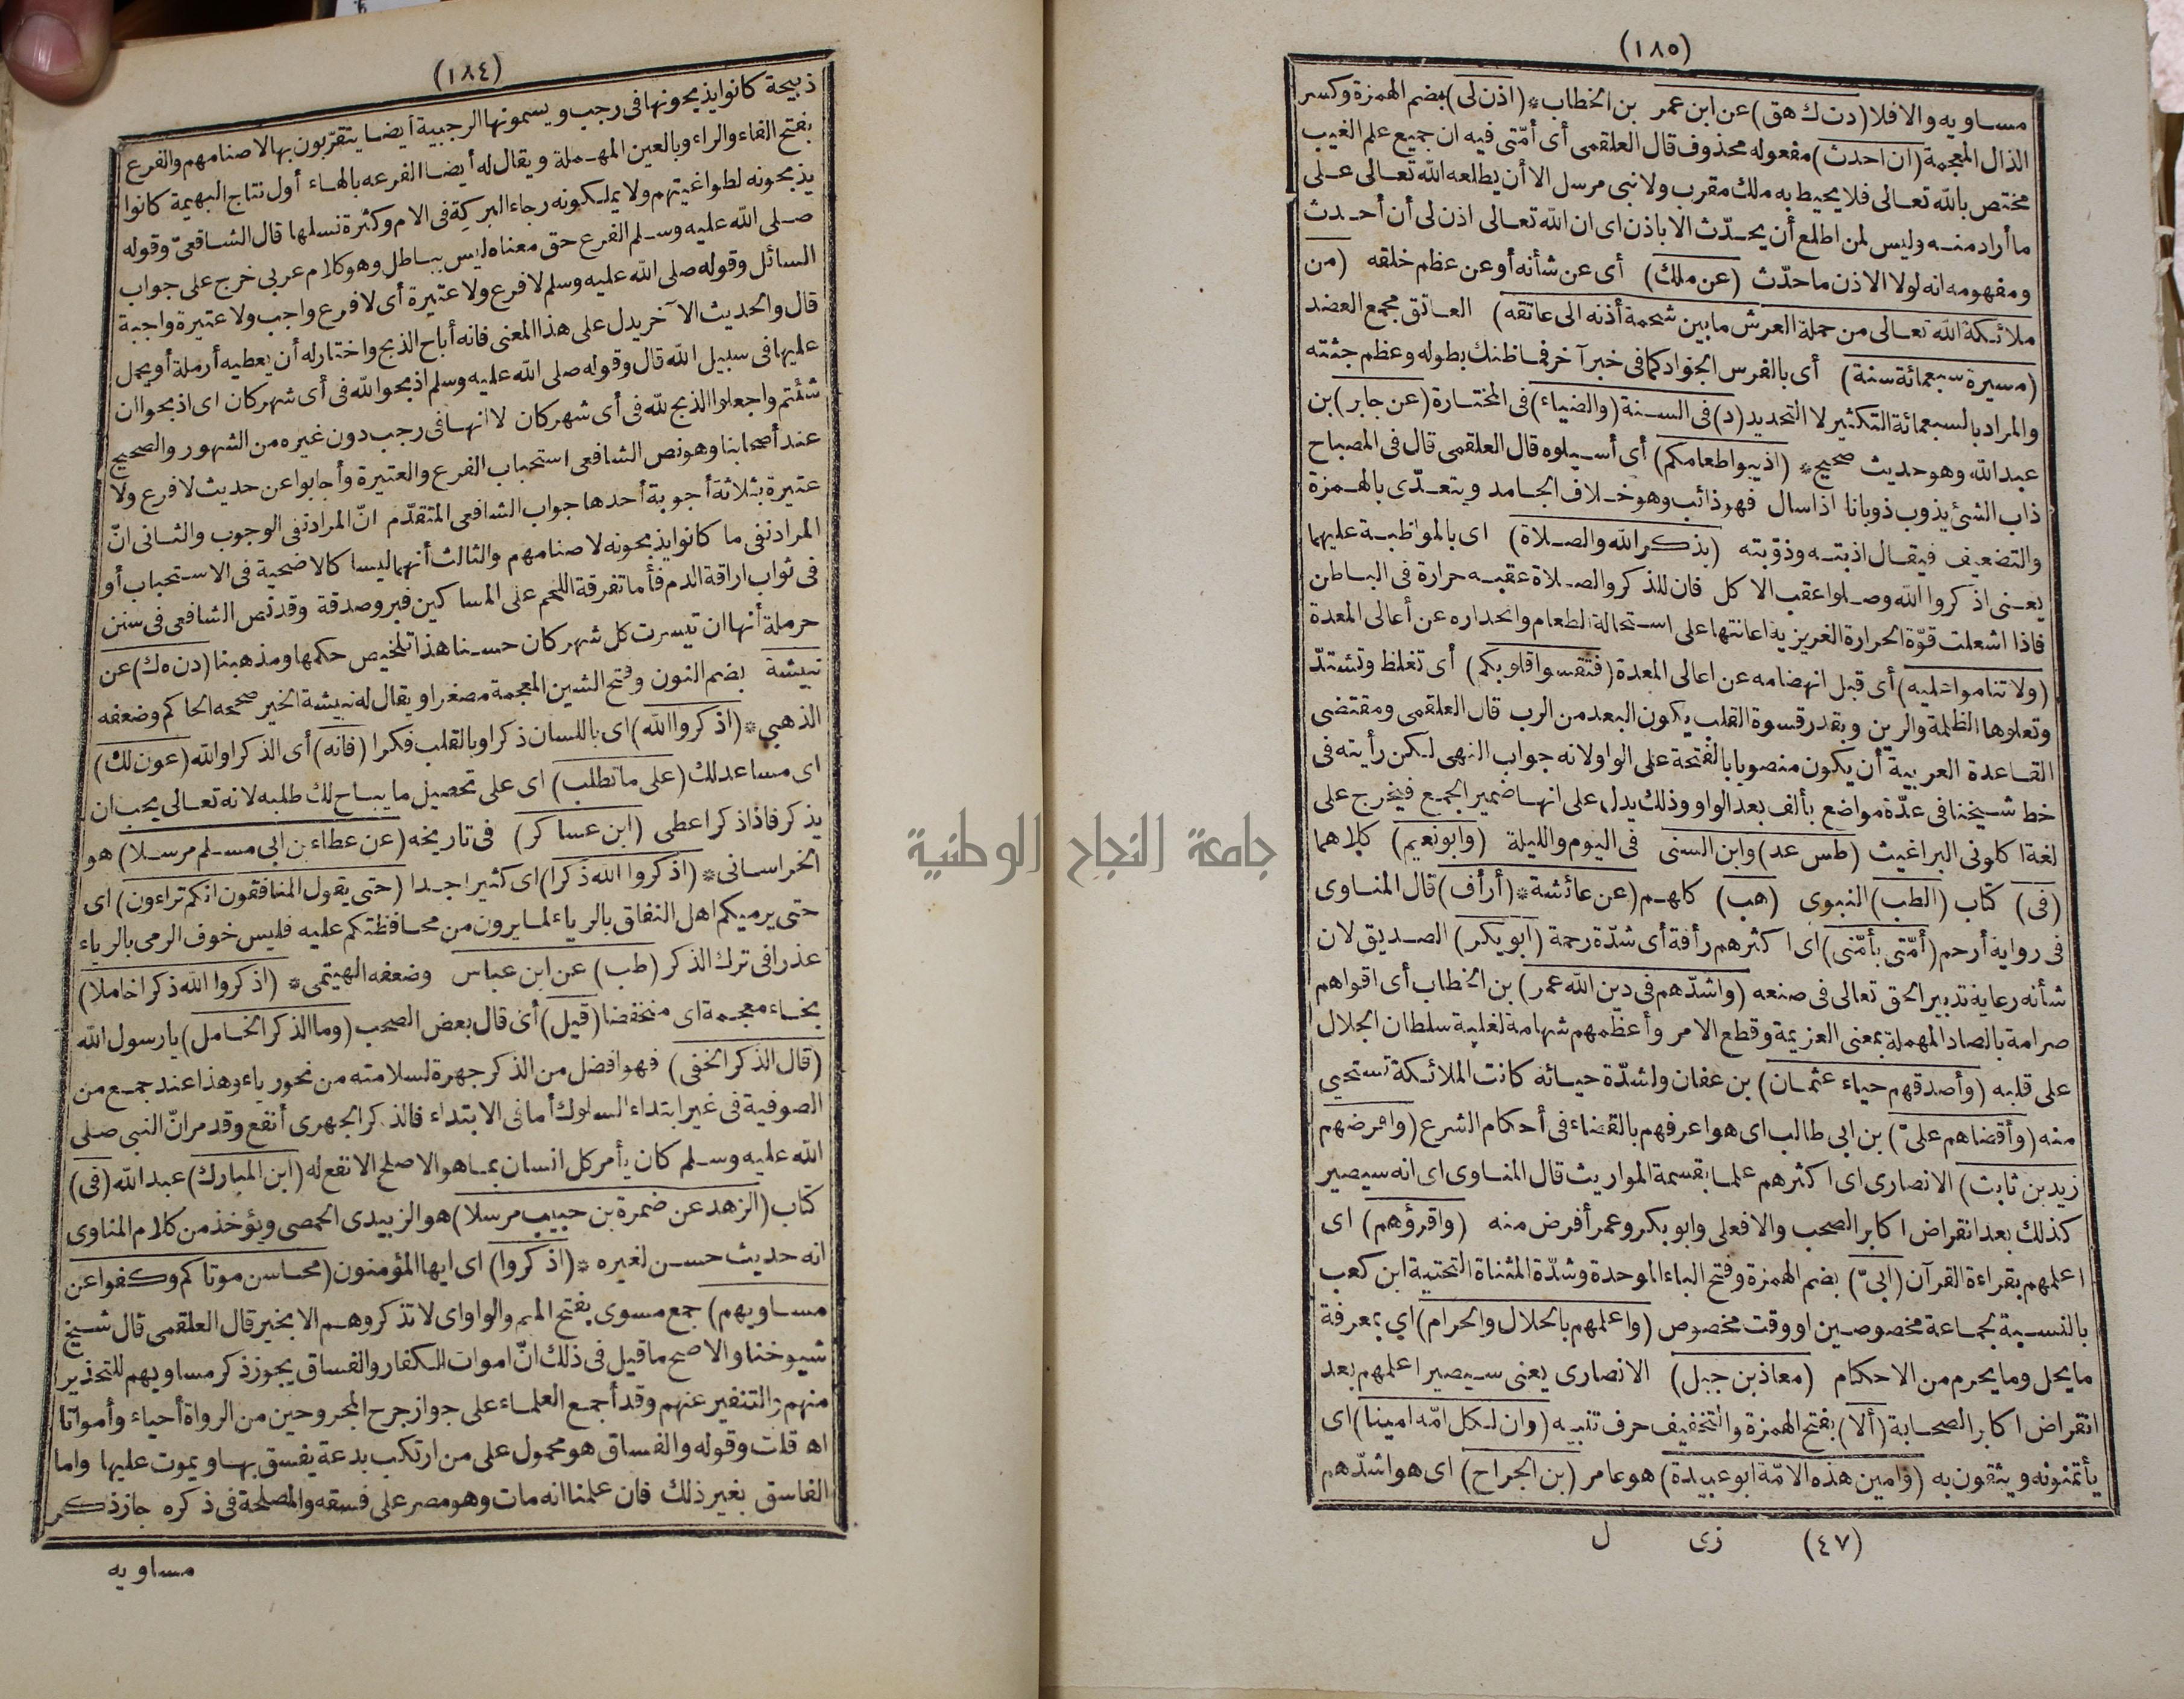 (١٨٤)
ذبيحة كانوا يذبحونها فى رجب ويسمونها الرجبية أيضا يتقرّبون بها لاصنامهم والفرع
بفتح الفاء والراء وبالعين المهملة ويقال له أيضا الفرعه بالهاء أول نتاج البهيمة كانوا
يذبحونه لطواغيتهم ولا يملكونه رجاء البركة فى الام وكثرة نسلها قال الشافعىّ وقوله
صلى الله عليه وسلم الفرع حق معناه ليس بباطل وهو كلام عربى خرج على جواب
السائل وقوله صلى الله عليه وسلم لا فرع ولا عتيرة أى لا فرع واجب ولا عتيرة واجبة
قال والحديث الآخر يدل على هذا المعنى فانه أباح الذبح واختار له أن يعطيه أرملة أو يحمل
عليها فى سبيل الله قال وقوله صلى الله عليه وسلم اذبحوا لله فى أى شهر كان اى اذبحوا ان
شئتم واجعلوا الذبح لله فى أى شهر كان لا انها فى رجب دون غيره من الشهور والصحيح
عند أصحابنا وهو نص الشافعى استحباب الفرع والعتيرة وأجابوا عن حديث لا فرع ولا
عتيرة بثلاثة أجوبة أحدها جواب الشافعى المتقدّم انّ المراد نفى الوجوب والثانى انّ
المراد نفى ما كانوا يذبحونه لاصنامهم والثالث أنهما ليسا كالاضحية فى الاستحباب أو
فى ثواب اراقة الدم فأما تفرقة اللحم على المساكين فبر وصدقة وقد نص الشافعى فى سنن
حرملة أنها ان تيسرت كل شهر كان حسنا هذا تلخيص حكمها ومذهبنا (دن ه ك) عن
نبيشة بضم النون وفتح الشين المعجمة مصغرا ويقال له نبيشة الخير صححه الحاكم وضعفه
الذهبي * (اذكروا الله) اى باللسان ذكرا وبالقلب فكرا (فانه) أى الذكر او الله (عون لك)
اى مساعد لك (على ما تطلب) اى على تحصيل ما يباح لك طلبه لانه تعالى يحب ان
يذكر فاذا ذكر اعطى (ابن عساكر) فى تاريخه (عن عطاء بن ابى مسلم مرسلا) هو
الخراسانى * (اذكروا الله ذكرا) اى كثيرا جدا (حتى يقول المنافقون انكم تراءون) اى
حتى يرميكم اهل النفاق بالرياء لما يرون من محافظتكم عليه فليس خوف الرمى بالرياء
عذرا فى ترك الذكر (طب) عن ابن عباس وضعفه الهيتمى * (اذكروا الله ذكرا خاملا)
بخاء معجمة اى منخفضا (قيل) أى قال بعض الصحب (وما الذكر الخامل) يا رسول الله
(قال الذكر الخفى) فهو افضل من الذكر جهرة لسلامته من نحو رياء وهذا عند جمع من
الصوفية فى غير ابتداء السلوك أما فى الابتداء فالذكر الجهرى أنفع وقد مر انّ النبى صلى
الله عليه وسلم كان يأمر كل انسان بما هو الاصلح الانفع له (ابن المبارك) عبد الله (فى)
كتاب (الزهد عن ضمرة بن حبيب مرسلا) هو الزبيدى الحمصى ويؤخذ من كلام المناوى
انه حديث حسن لغيره * (اذكروا) اى ايها المؤمنون (محاسن موتاكم وكفوا عن
مساويهم) جمع مسوى بفتح الميم والواو اى لا تذكروهم الا بخير قال العلقمى قال شيخ
شيوخنا والاصح ما قيل فى ذلك انّ اموات الكفار والفساق يجوز ذكر مساويهم للتحذير
منهم والتنفير عنهم وقد أجمع العلماء على جواز جرح المجروحين من الرواة أحياء وأمواتا
اه قلت وقوله والفساق هو محمول على من ارتكب بدعة يفسق بها ويموت عليها واما
الفاسق بغير ذلك فان علمنا انه مات وهو مصر على فسقه والمصلحة فى ذكره جاز ذكر
مساويه
(١٨٥)
مساويه والا فلا (دت ك هق) عن ابن عمر بن الخطاب * (اذن لى) بضم الهمزة وكسر
الذال المعجمة (ان احدث) مفعوله محذوف قال العلقمى أى أمّتى فيه ان جميع علم الغيب
مختص بالله تعالى فلا يحيط به ملك مقرب ولا نبى مرسل الا أن يطلعه الله تعالى على
ما أراد منه وليس لمن اطلع أن يحدّث الا باذن اى ان الله تعالى اذن لى أن أحدث
ومفهومه انه لولا الاذن ما حدّث (عن ملك) أى عن شأنه أو عن عظم خلقه (من
ملائكة الله تعالى من حملة العرش ما بين شحمة أذنه الى عاتقه) العاتق مجمع العضد
(مسيرة سبعمائة سنة) أى بالفرس الجواد كما فى خبر آخر فما ظنك بطوله وعظم جثته
والمراد بالسبعمائة التكثير لا التحديد (د) فى السنة (والضياء) فى المختارة (عن جابر) بن
عبد الله وهو حديث صحيح * (اذيبوا طعامكم) أى أسيلوه قال العلقمى قال فى المصباح
ذاب الشئ يذوب ذوبانا اذا سال فهو ذائب وهو خلاف الجامد ويتعدّى بالهمزة
والتضعيف فيقال اذبته وذوّبته (بذكر الله والصلاة) اى بالمواظبة عليهما
يعنى اذكروا الله وصلوا عقب الاكل فان للذكر والصلاة عقبه حرارة فى الباطن
فاذا اشعلت قوّة الحرارة الغريزية اعانتها على استحالة الطعام وانحداره عن أعالى المعدة
(ولا تناموا عليه) أى قبل انهضامه عن اعالى المعدة (فتقسوا قلوبكم) أى تغلظ وتشتدّ
وتعلوها الظلمة والرين وبقدر قسوة القلب يكون البعد من الرب قال العلقمى ومقتضى
القاعدة العربية أن يكون منصوبا بالفتحة على الواو لانه جواب النهى لكن رأيته فى
خط شيخنا فى عدّة مواضع بألف بعد الواو وذلك يدل على انها ضمير الجمع فيخرج على
لغة اكلونى البراغيث (طس عد) وابن السنى فى اليوم والليلة (وابو نعيم) كلاهما
(فى) كتاب (الطب) النبوى (هب) كلهم (عن عائشة * (أرأف) قال المناوى
فى رواية أرحم (أمّتى بأمّتى) اى اكثرهم رأفة أى شدّة رحمة (أبو بكر) الصديق لان
شأنه رعاية تدبير الحق تعالى فى صنعه (واشدّهم فى دين الله عمر) بن الخطاب أى اقواهم
صرامة بالصاد المهملة بمعنى العزيمة وقطع الامر وأعظمهم شهامة لغلبة سلطان الجلال
على قلبه (وأصدقهم حياء عثمان) بن عفان ولشدّة حيائه كانت الملائكة تستحيي
منه (وأقضاهم علىّ) بن ابى طالب اى هو اعرفهم بالقضاء فى أحكام الشرع (وافرضهم
زيد بن ثابت) الانصارى اى اكثرهم علما بقسمة المواريث قال المناوى اى انه سيصير
كذلك بعد انقراض اكابر الصحب والا فعلى وابو بكر وعمر أفرض منه (واقرؤهم) اى
اعلمهم بقراءة القرآن (ابىّ) بضم الهمزة وفتح الباء الموحدة وشدّة المثناة التحتية ابن كعب
بالنسبة لجماعة مخصوصين او وقت مخصوص (واعلمهم بالحلال والحرام) اى بمعرفة
ما يحل وما يحرم من الاحكام (معاذ بن جبل) الانصارى يعنى سيصير اعلمهم بعد
انقراض اكابر الصحابة (ألا) بفتح الهمزة والتخفيف حرف تنبيه (وان لكل امّة امينا) اى
يأتمنونه ويثقون به (وامين هذه الامّة ابو عبيدة) هو عامر (بن الجراح) اى هو اشدّهم
(٤٧) زى ل
جامعة النجاح الوطنية